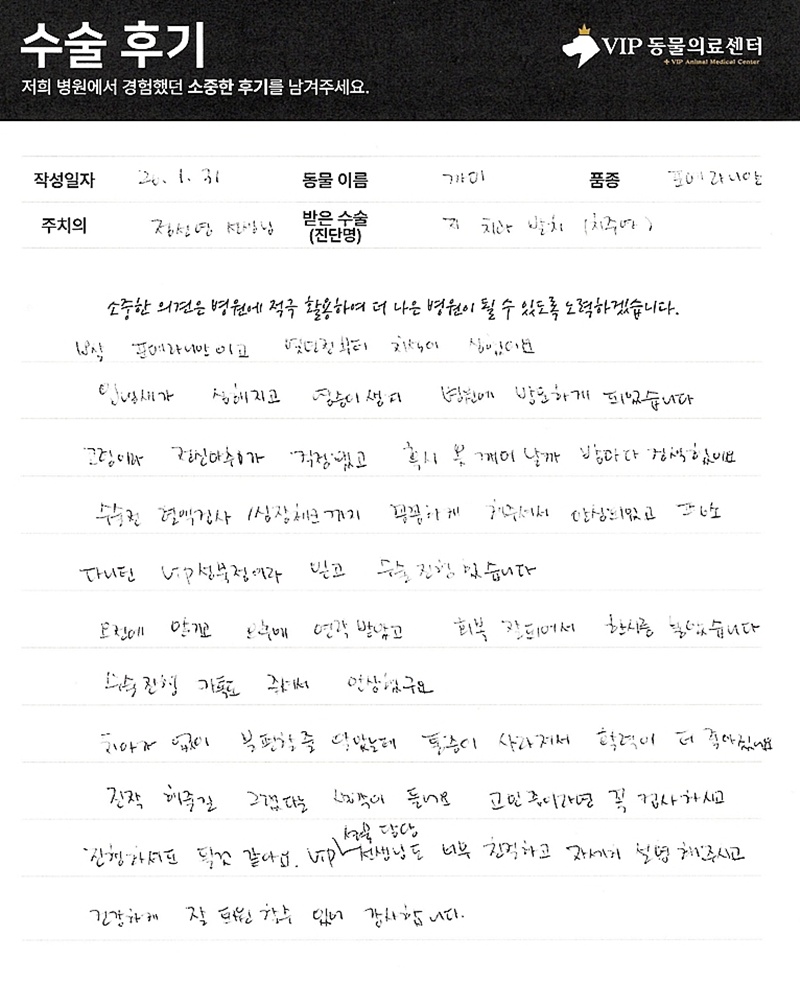 수술 후기
저희 병원에서 경험했던 소중한 후기를 남겨주세요.
VIP 동물의료센터
+ VIP Animal Medical Center
작성일자 20. 1. 31 동물 이름 개미 품종 포메라니안
주치의 정선연 선생님 받은 수술 (진단명) 치과 발치 (치주염)
소중한 의견은 병원에 적극 활용하여 더 나은 병원이 될 수 있도록 노력하겠습니다.
포메라니안이고 몇년전부터 치석이 심했어요
입냄새가 심해지고 염증이 생겨 병원에 방문하게 되었습니다
고령이라 전신마취가 걱정됐고 혹시 못 깨어날까 밤마다 검색했어요
수술전 혈액검사 / 심장체크까지 꼼꼼하게 해주셔서 안심되었고 평소
다니던 vip성북점이라 믿고 수술 진행했습니다
오전에 맡기고 오후에 연락 받았고 회복 잘되어서 한시름 놓았습니다
수술 진행 카톡도 주셔서 안심했구요
치아가 없어 불편할줄 알았는데 통증이 사라져서 활력이 더 좋아졌네요
진작 해줄걸 그랬다는 생각이 들어요 고민중이라면 꼭 검사하시고
진행하셔도 될것 같아요. vip 선생님도 너무 친절하고 자세히 설명해주시고
건강하게 잘 퇴원할수 있어 감사합니다.